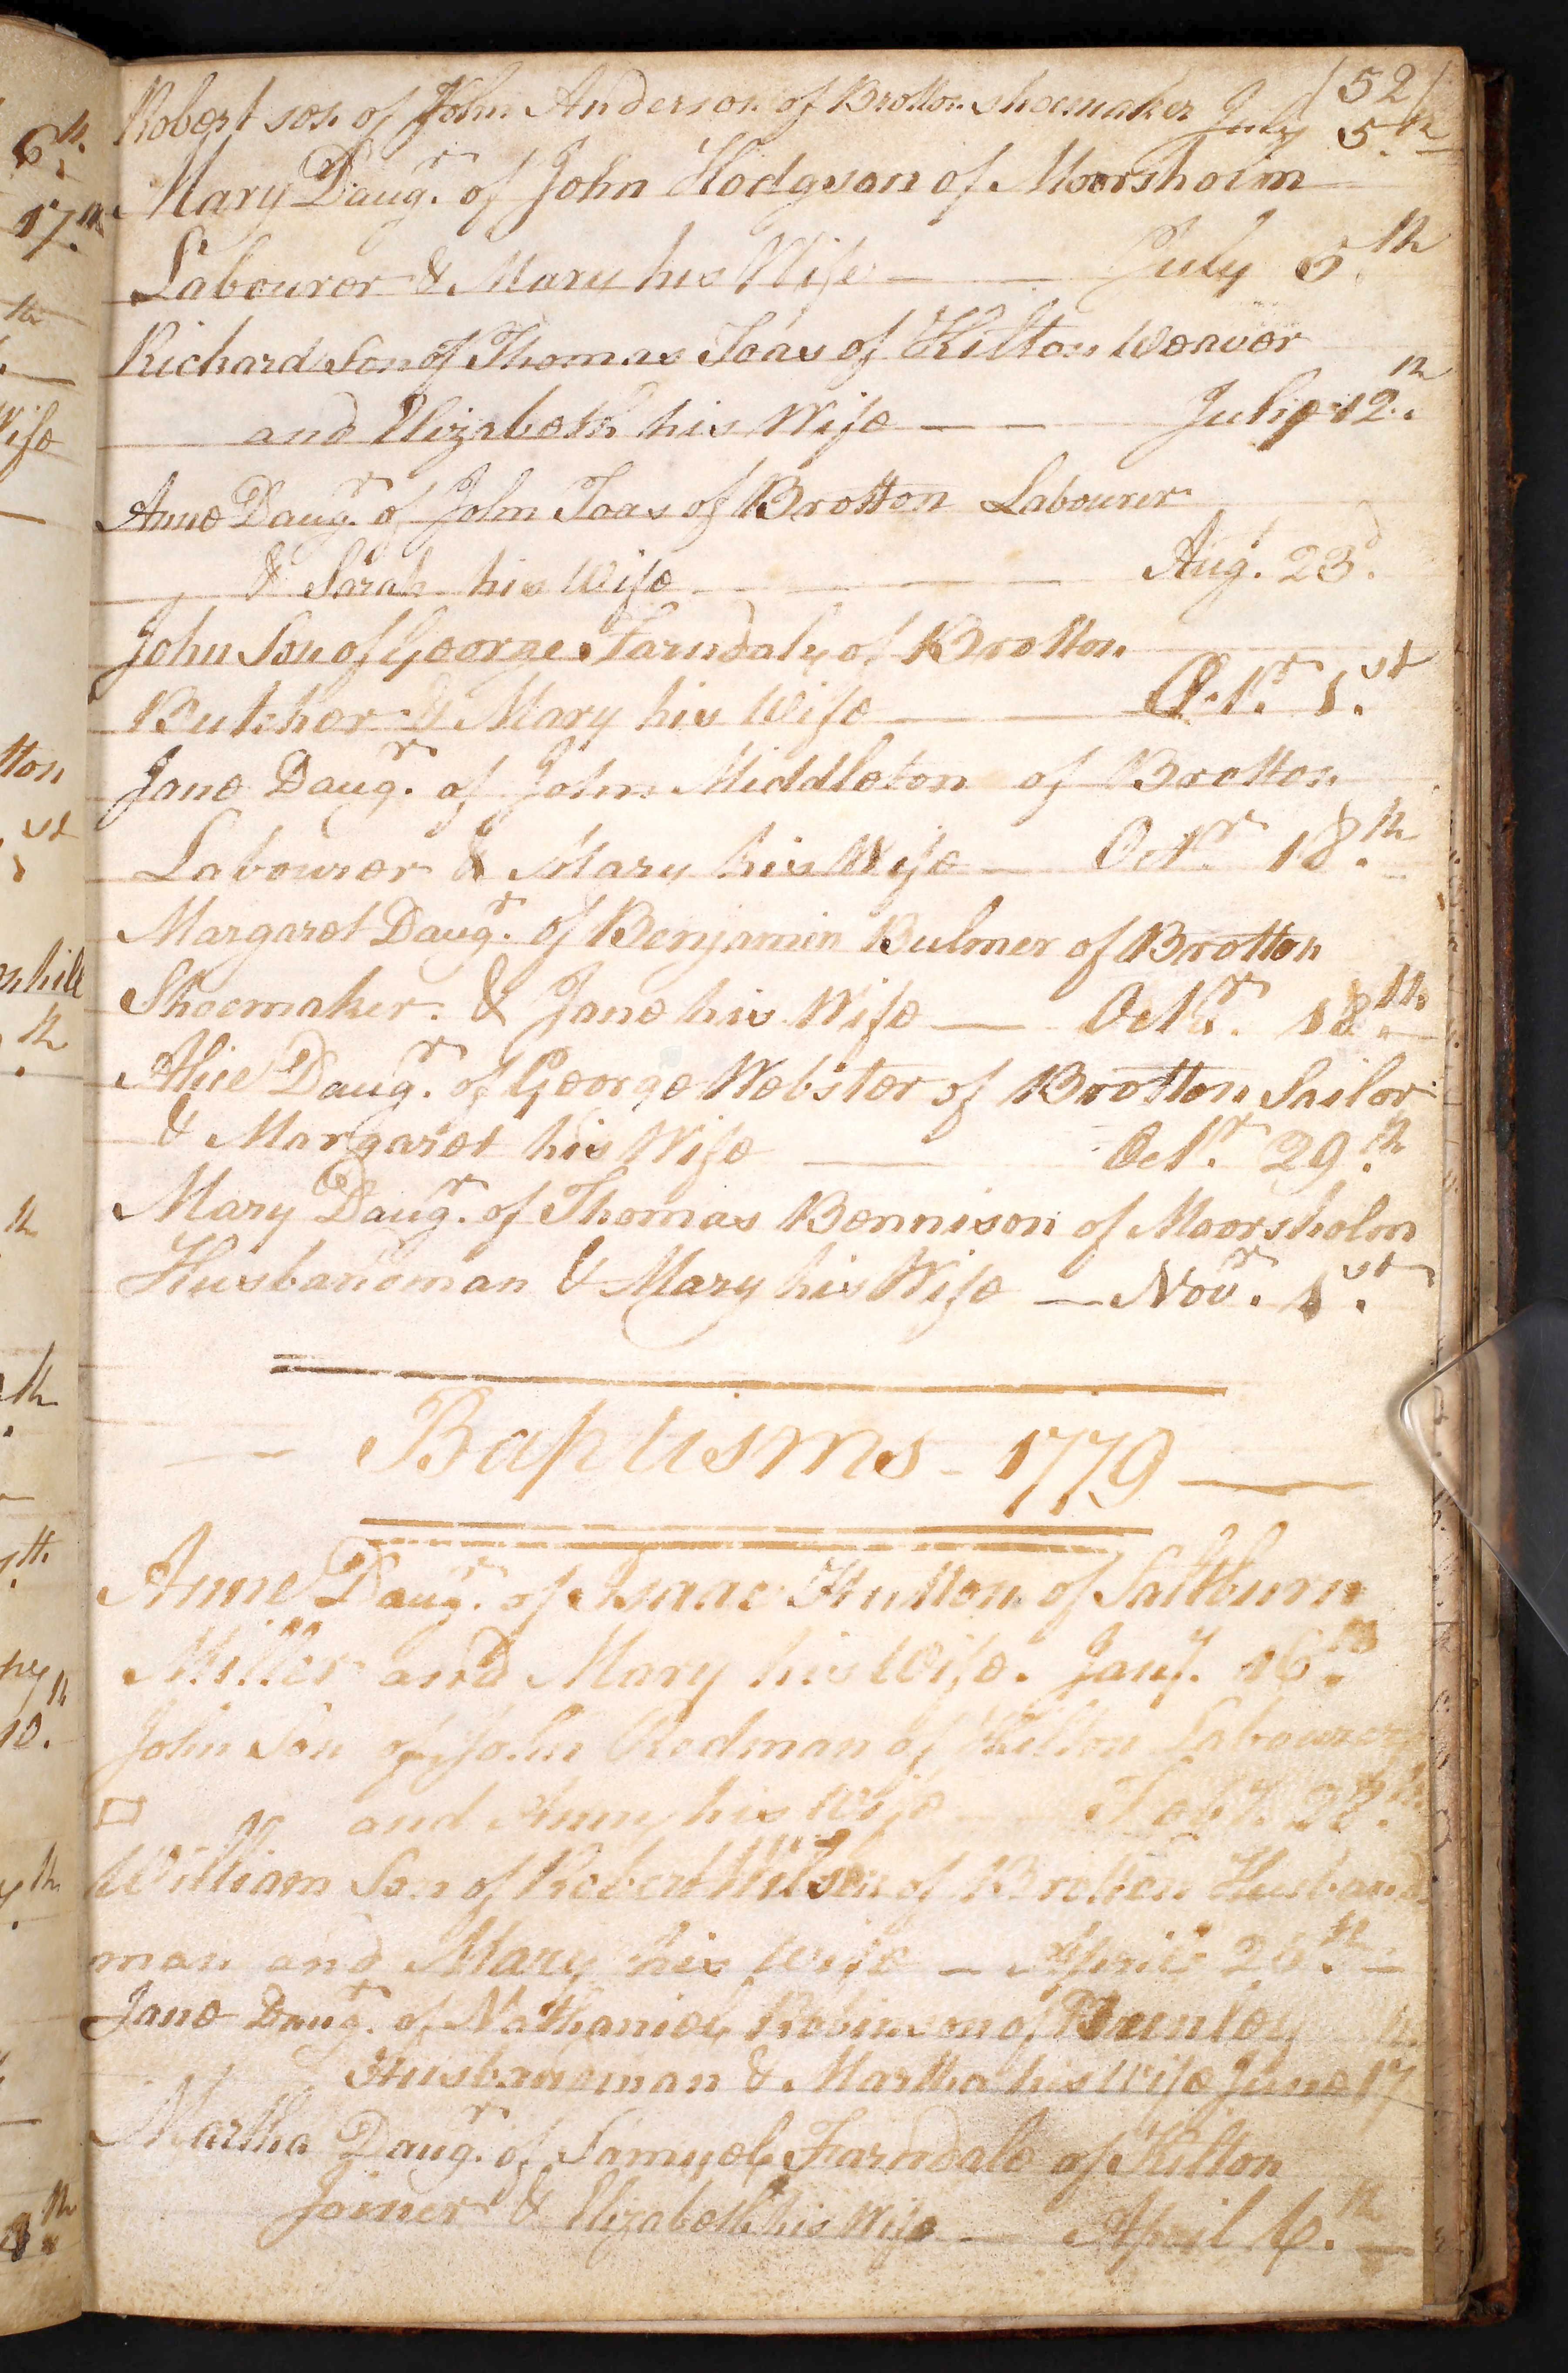 (52)
Robert son of John Anderson of Brotton shoemaker July 5.th
Mary Daugr. of John Hodgson of Moorsholm
Labourer & Mary his Wife — — July 5.th
Richard Son of Thomas Toas of Kilton Weaver
and Elizabeth his Wife — — July 12.th
Anne Daugr. of John Toas of Brotton Labourer
& Sarah his Wife — — Augt. 23d.
John Son of George Farndaly of Brotton
Butcher & Mary his Wife — — Octr. 1.st
Jane Daugr. of John Middleton of Brotton
Labourer & Mary his Wife — Octr. 18.th
Margaret Daugr. of Benjamin Bulmer of Brotton
Shoemaker & Jane his Wife — Octr. 18.th
Alice Daugr. of George Webster of Brotton Sailor
& Margaret his Wife — Octr. 29.th
Mary Daugr. of Thomas Bennison of Moorsholm
Husbandman & Mary his Wife — Novr. 1.st
— Baptisms - 1779 —
Anne Daugr. of Isaac Hutton of Saltburn
Miller and Mary his Wife. Jany. 16.th
John Son of John Redman of Kilton Labourer
and Anny his Wife — Feby. 28.th
William Son of Robert Wilson of Brotton Husband
man and Mary his Wife — April
Jane Daugr. of Nathaniel Robinson of
Husbandman & Martha his Wife June 17
Martha Daugr. of Samuel Farndale of Kilton
Joiner & Elizabeth his Wife — April 6.th
6th.
17.th
th
Wife
tton
st
nhill
th
th
th
th.
10.
th
th